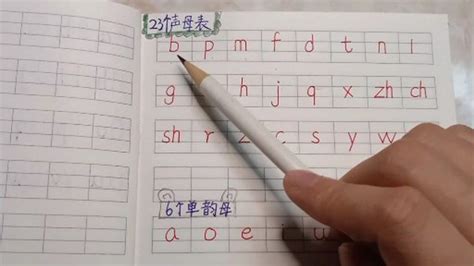 23个声母表
b p m f d t n l
g h j q x zh ch
sh r z c s y w
6个单韵母
a o e i u